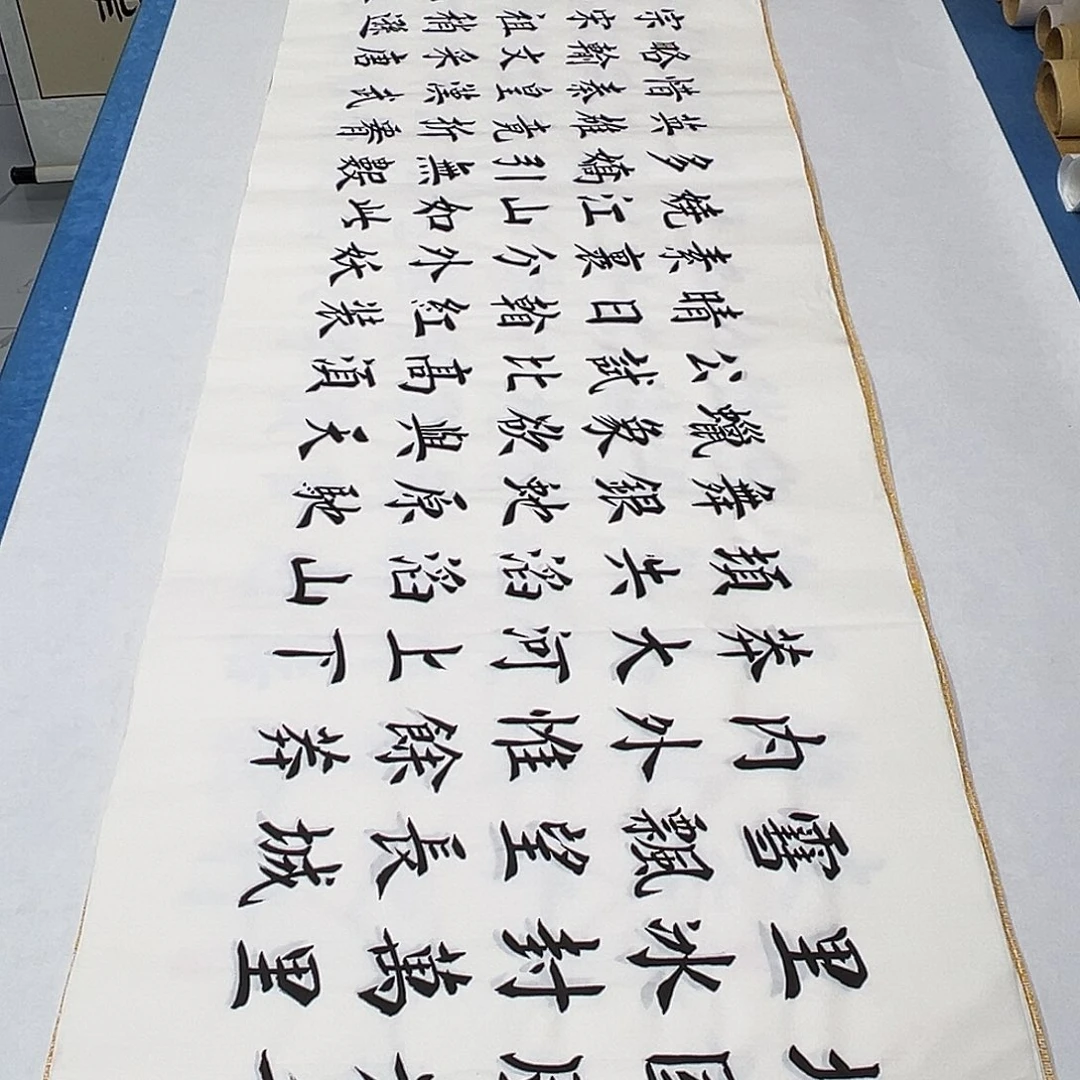 里冰封萬里
雪飄望長城
內外惟餘莽
莽大河上下
頓失滔滔山
舞銀蛇原馳
蠟象欲與天
公試比高須
晴日看紅裝
素裹分外妖
嬈江山如此
多嬌引無數
英雄競折腰
惜秦皇漢武
略輸文采唐
宗宋祖稍遜